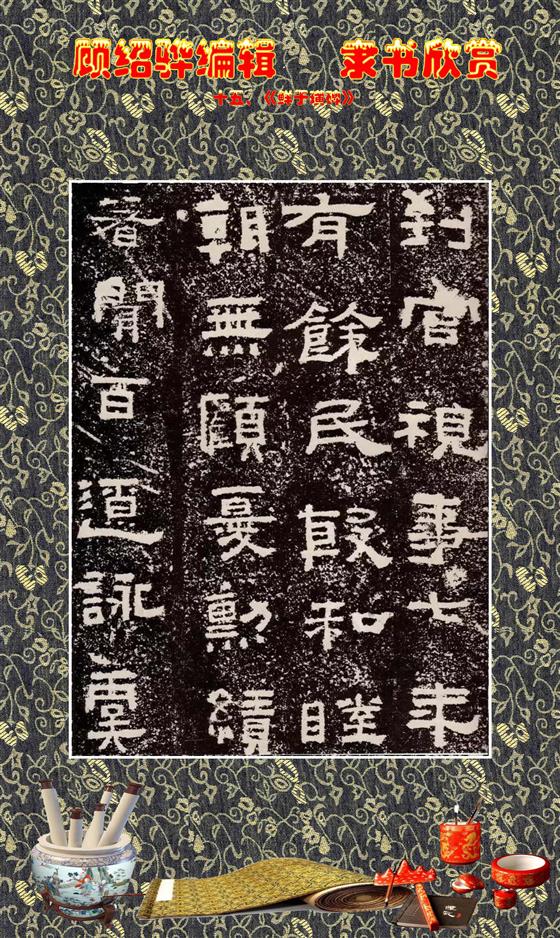 顾绍骅编辑 隶书欣赏
十五、《鲜于璜碑》
到官視事七年
有餘民殷和睦
朝無顧憂勳績
著聞百遼詠虞